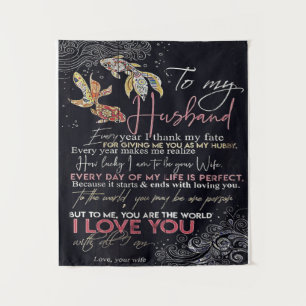 To my
Husband
Every year I thank my fate
FOR GIVING ME YOU AS MY HUBBY.
Every year makes me realize
How lucky I am to be your Wife.
EVERY DAY OF MY LIFE IS PERFECT,
Because it starts & ends with loving you.
To the world, you may be one person
BUT TO ME, YOU ARE THE WORLD.
I LOVE YOU
with all I am.
Love, your wife